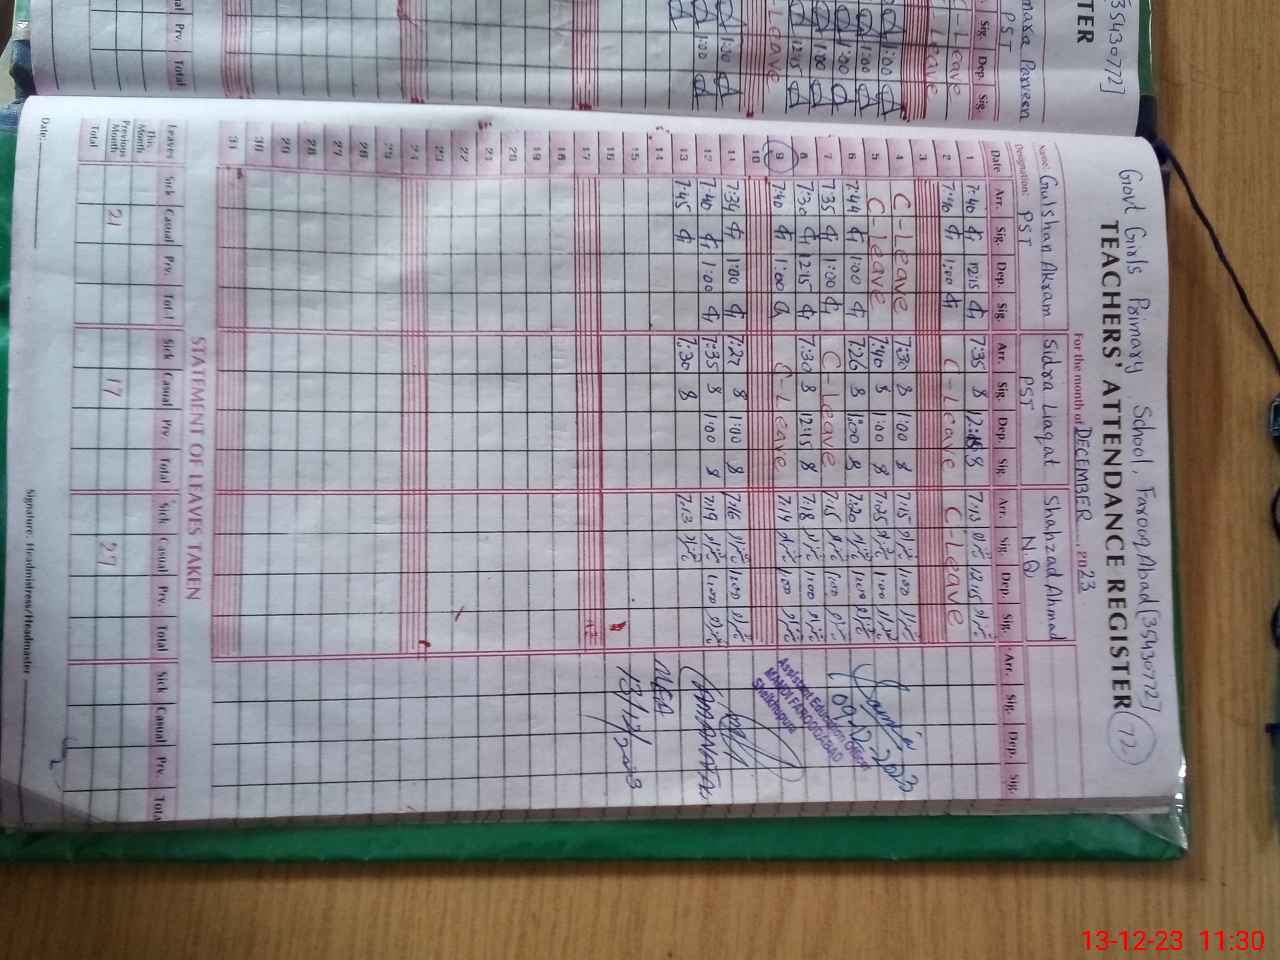 Govt Girls Primary School, Farooq Abad [35430772]
TEACHERS' ATTENDANCE REGISTER 72
For the month of DECEMBER, 2023
Name: Gulshan Akram Sidra Liaqat Shahzad Ahmad
Designation: PST PST N.Q
Date Arr. Sig. Dep. Sig. Arr. Sig. Dep. Sig. Arr. Sig. Dep. Sig. Arr. Sig. Dep. Sig.
1 7:40 12:15 7:35 7:13 12:15
2 7:40 1:00 C-Leave C-Leave
3
4 C-Leave 7:30 1:00 7:15 1:00
5 C-Leave 7:40 1:00 7:25 1:00
6 7:44 1:00 7:26 1:00 7:20 1:00
7 7:35 1:00 C-Leave 7:15 1:00
8 7:30 12:15 7:30 12:15 7:18 1:00
9 7:40 1:00 C-Leave 7:14 1:00
10
11 7:34 1:00 7:27 1:00 7:16 1:00
12 7:40 1:00 7:35 1:00 7:19 1:00
13 7:45 7:30 7:13
14
15
16
17
18
19
20
21
22
23
24
25
26
27
28
29
30
31
Assistant Education Officer
MANDI FAROOQABAD
Sheikhupura
MEA
13/12/2023
STATEMENT OF LEAVES TAKEN
Leaves Sick Casual Prv. Total Sick Casual Prv Total Sick Casual Prv. Total Sick Casual Prv. Total
This Month
Previous Month 21 17 27
Total
Date: Signature: Headmistress/Headmaster
35430772]
TER
Parveen
PST
Sig. Dep. Sig.
C-Leave
Leave
1:00
1:00
1:00
1:00
12:15
Leave
1:30
1:00
Prv. Total
13-12-23 11:30